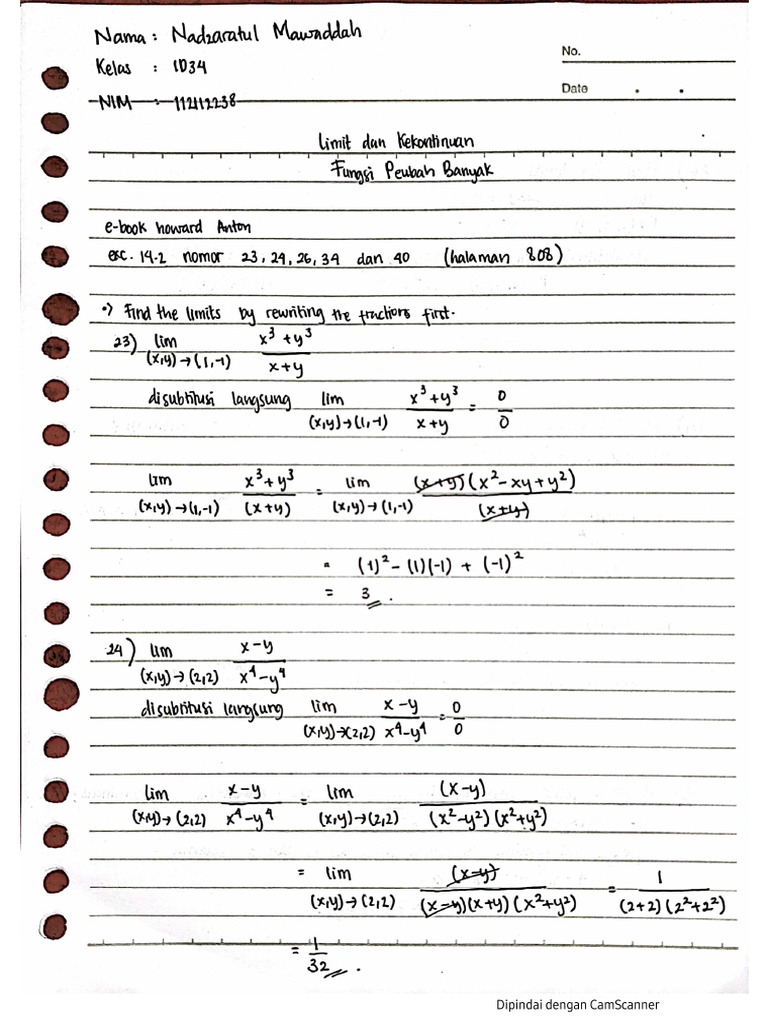 Nama : Nadzaratul Mawaddah
Kelas : 1D34
No.
NIM : 112112238
Date . .
Limit dan Kekontinuan
Fungsi Peubah Banyak
e-book howard Anton
exc. 14-2 nomor 23, 24, 26, 34 dan 40 (halaman 808)
•) Find the limits by rewriting the fractions first.
23) lim (x,y) → (1,-1) x³ + y³ / x+y
disubtitusi langsung lim (x,y) → (1,-1) x³+y³ / x+y = 0/0
lim (x,y) → (1,-1) x³+y³ / (x+y) = lim (x,y) → (1,-1) (x+y)(x²-xy+y²) / (x+y)
= (1)² - (1)(-1) + (-1)²
= 3 .
24) lim (x,y) → (2,2) x-y / x⁴-y⁴
disubtitusi langsung lim (x,y) → (2,2) x-y / x⁴-y⁴ = 0/0
lim (x,y) → (2,2) x-y / x⁴-y⁴ = lim (x,y) → (2,2) (x-y) / (x²-y²)(x²+y²)
= lim (x,y) → (2,2) (x-y) / (x-y)(x+y)(x²+y²) = 1 / (2+2)(2²+2²)
= 1/32 .
Dipindai dengan CamScanner